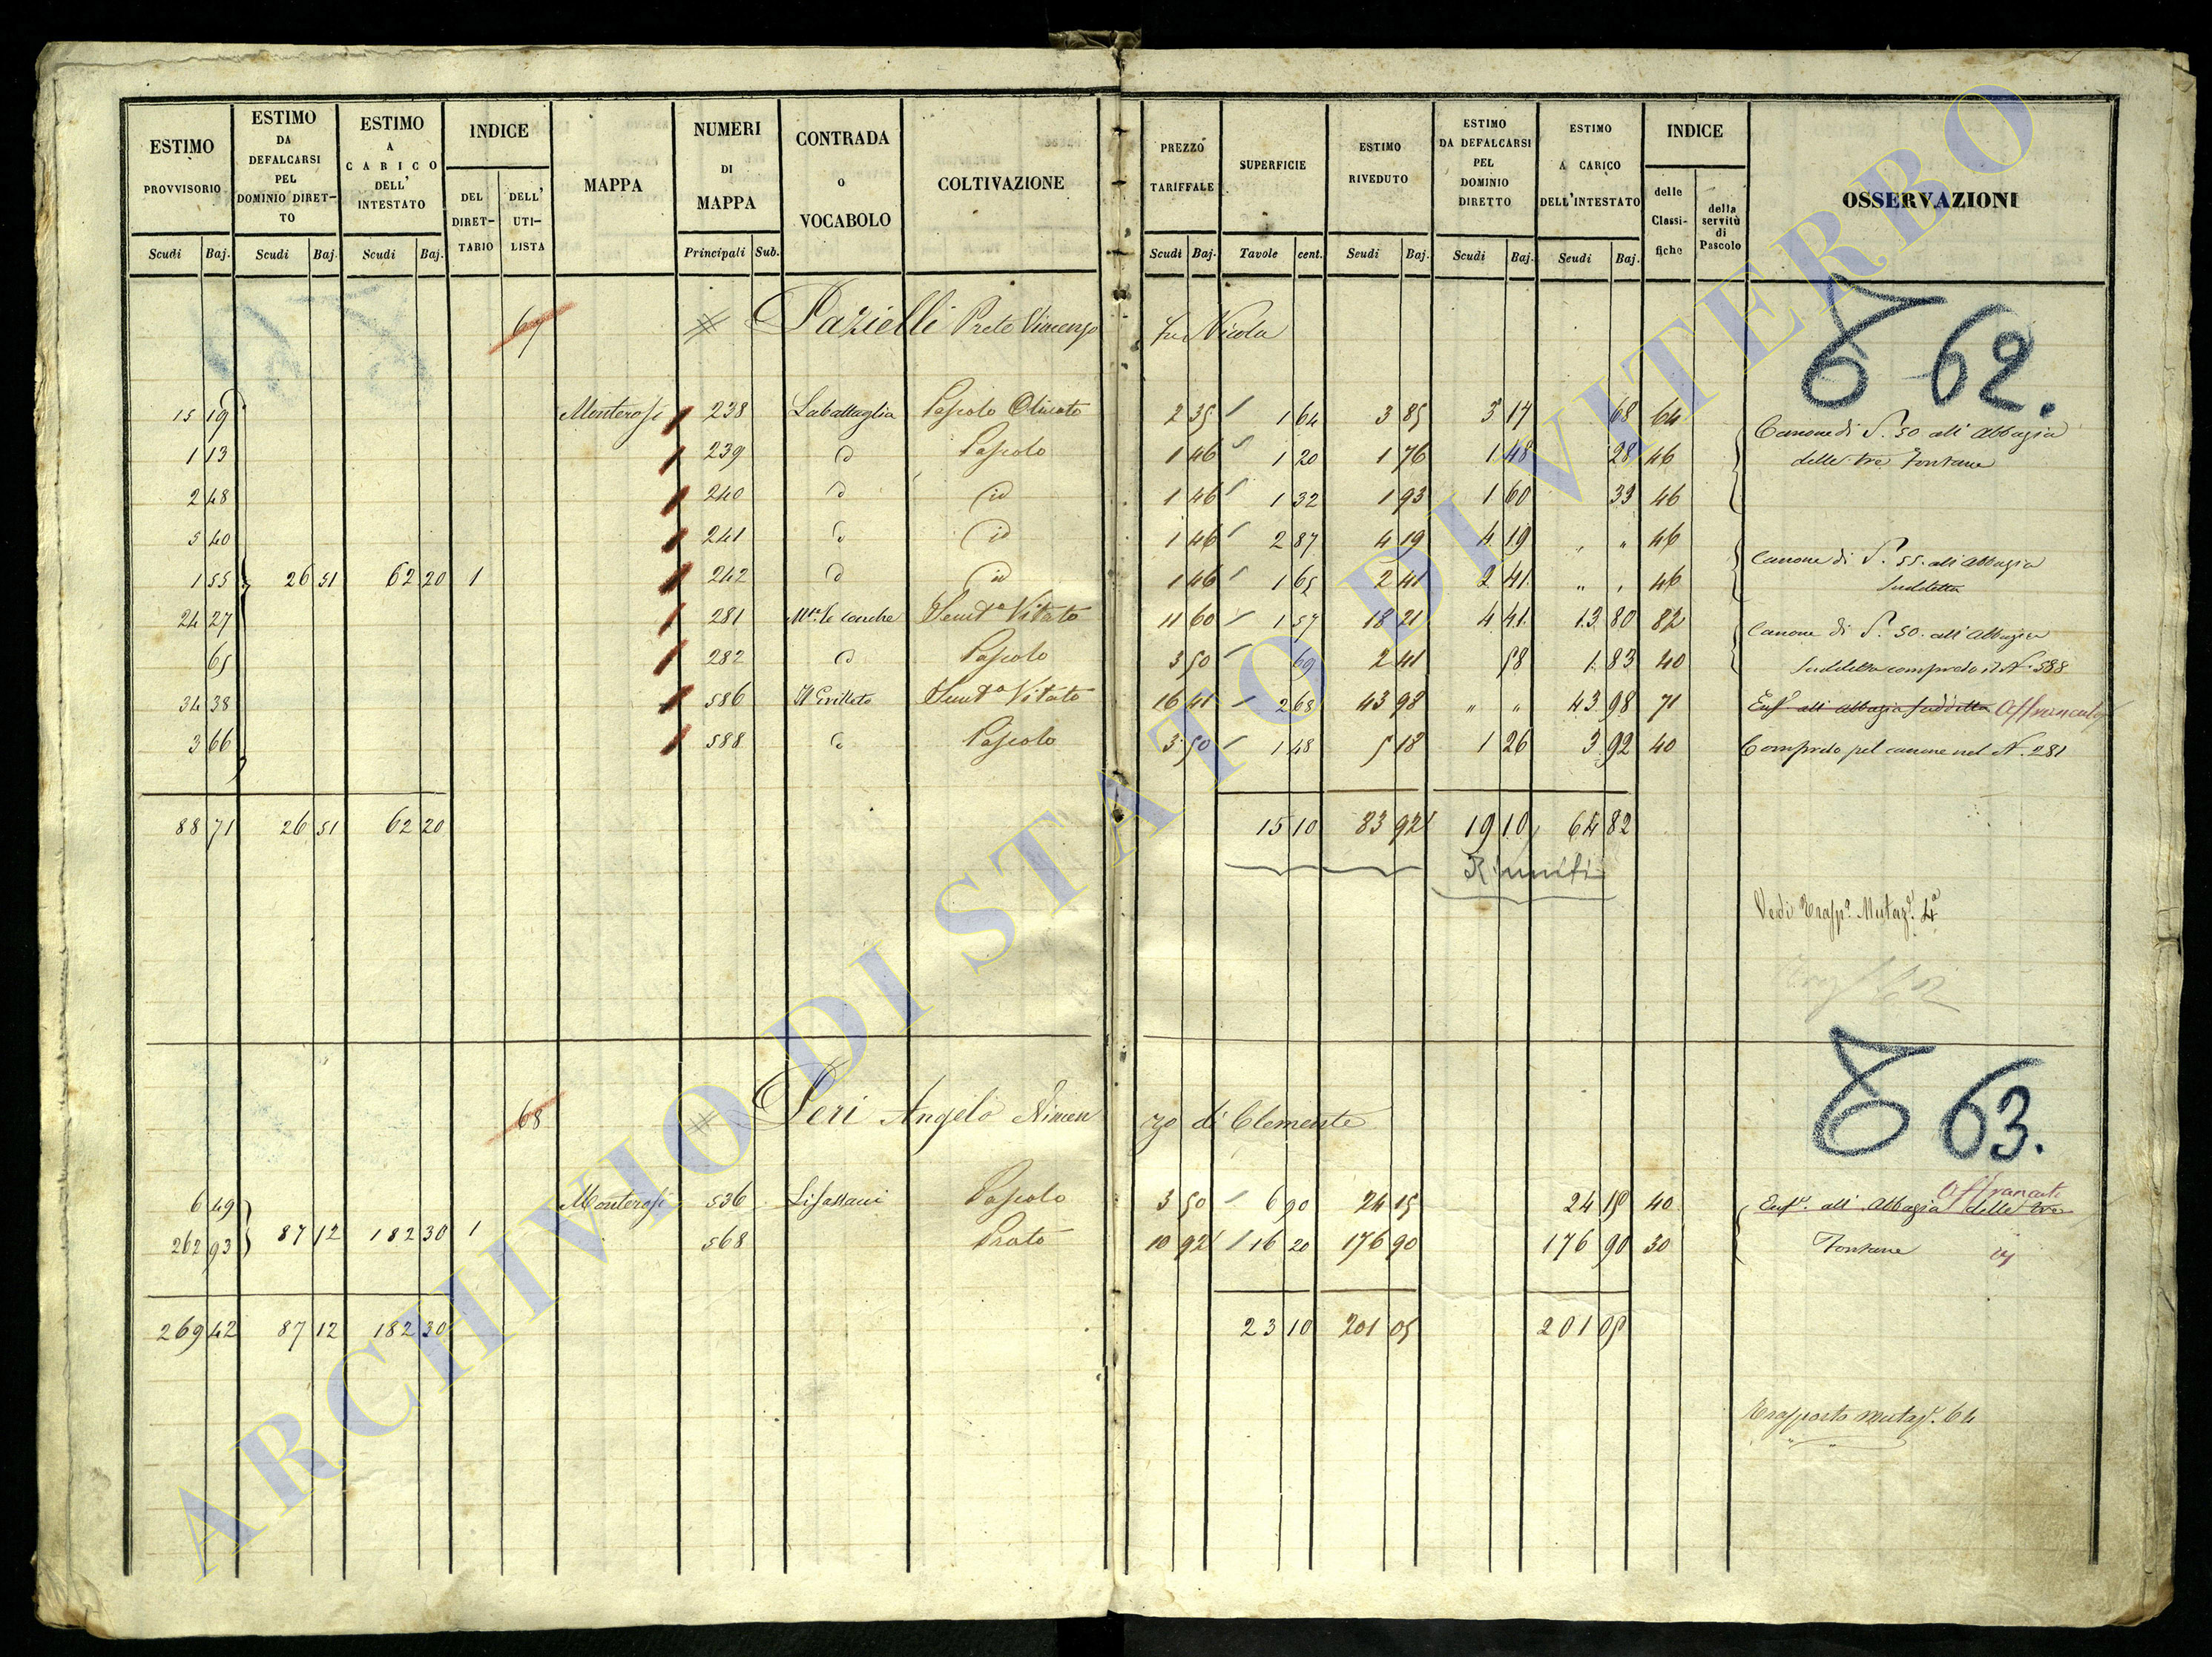 ESTIMO PROVVISORIO Scudi Baj.
ESTIMO DA DEFALCARSI PEL DOMINIO DIRET-TO Scudi Baj.
ESTIMO A CARICO DELL' INTESTATO Scudi Baj.
INDICE DEL DIRET-TARIO DELL' UTI-LISTA
MAPPA
NUMERI DI MAPPA Principali Sub.
CONTRADA O VOCABOLO
COLTIVAZIONE
PREZZO TARIFFALE Scudi Baj.
SUPERFICIE Tavole cent.
ESTIMO RIVEDUTO Scudi Baj.
ESTIMO DA DEFALCARSI PEL DOMINIO DIRETTO Scudi Baj.
ESTIMO A CARICO DELL'INTESTATO Scudi Baj.
INDICE delle Classi-fiche della servitù di Pascolo
OSSERVAZIONI
67 Pazielli Prete Vincenzo fu Nicola
62.
15 19 Monterosi 238 Labattaglia Pascolo Olivato 2 35 1 64 3 85 3 17 68 64 Canone di S. 50 all Abbazia
1 13 239 d Pascolo 1 46 1 20 1 76 1 48 28 46 delle tre Fontane
2 48 240 d id 1 46 1 32 1 93 1 60 33 46
5 40 241 d id 1 46 2 87 4 19 4 19 " " 46 Canone di S. 55. all'Abbazia
1 55 26 51 62 20 1 242 d id 1 46 1 65 2 41 2 41 " " 46 Suddetta
24 27 281 Mte. le conche Semta Vitato 11 60 1 57 18 21 4 41 13 80 82 Canone di S. 50. all'Abbazia
65 282 d Pascolo 3 50 69 2 41 58 1 83 40 Suddetta compreso il N. 588
34 38 586 Il Grilleto Semta Vitato 16 41 2 68 43 98 " " 43 98 71 Enfi. all' Abbazia suddetta Affrancato
3 66 588 d Pascolo 3 50 1 48 5 18 1 26 3 92 40 Compreso pel canone nel N. 281
88 71 26 51 62 20 15 10 83 92 19 10 64 82
Riuniti
Vedi Trasp.o Mutaz. 4a
68 Peri Angelo Vincenzo di Clemente
63.
6 49 Monterosi 536 Pascolo 3 50 6 90 24 15 24 15 40 Enfi. all' Abbazia delle tre
Affrancati
262 93 87 12 182 30 1 568 Prato 10 92 16 20 176 90 176 90 30 Fontane
269 42 87 12 182 30 23 10 201 05 201 05
Trasporto mutaz. 64
ARCHIVIO DI STATO DI VITERBO